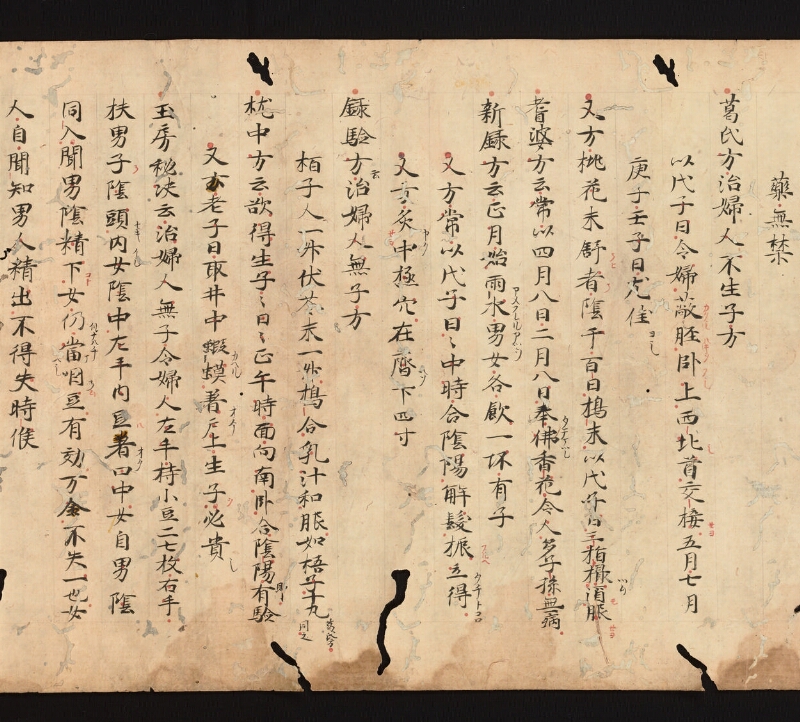 藥無禁
葛氏方治婦人不生子方
以戊子日令婦蔽脛臥上西北首交接五月七月
庚子壬子日尤佳
又方桃花未舒者陰干百日搗末以戊子日三指撮酒服
耆婆方云常以四月八日二月八日奉佛香花令人多子孫無病
新錄方云正月始雨水男女各飲一坏有子
又方常以戊子日〻中時合陰陽解髮振立得
又方灸中極穴在臍下四寸
錄驗方云治婦人無子方
栢子人一升伏苓末一升搗合乳汁和服如梧子十丸
枕中方云欲得生子〻日〻正午時面向南臥合陰陽有驗
又方老子日取井中蝦蟆著戶上生子必貴
玉房秘决云治婦人無子令婦人左手持小豆二七枚右手
扶男子陰頭内女陰中左手内豆著口中女自男陰
同入聞男陰精下女仍當咽豆有効万全不失一也女
人自聞知男人精出不得失時候